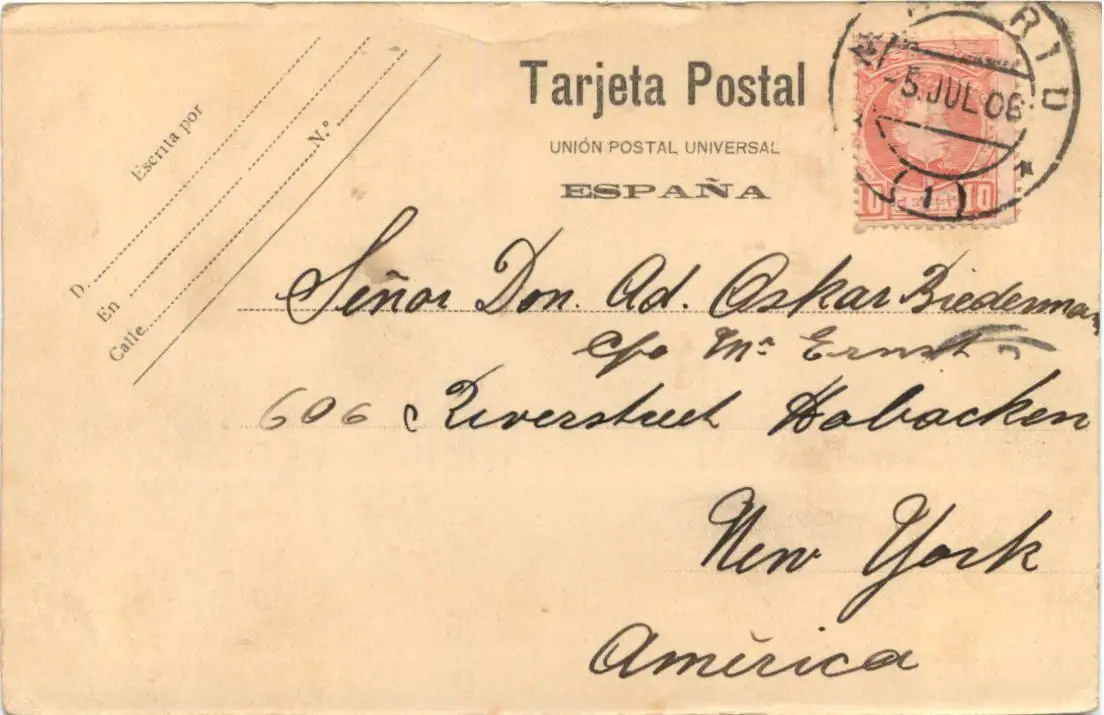 Tarjeta Postal
UNIÓN POSTAL UNIVERSAL
ESPAÑA
MADRID
-5.JUL.06
(1)
10 10
Escrita por
D.
En
Calle N.º
Señor Don. Ad. Oskar Biederman
c/o Mr Ernst
606 Riverstreet Hobacken
New York
América